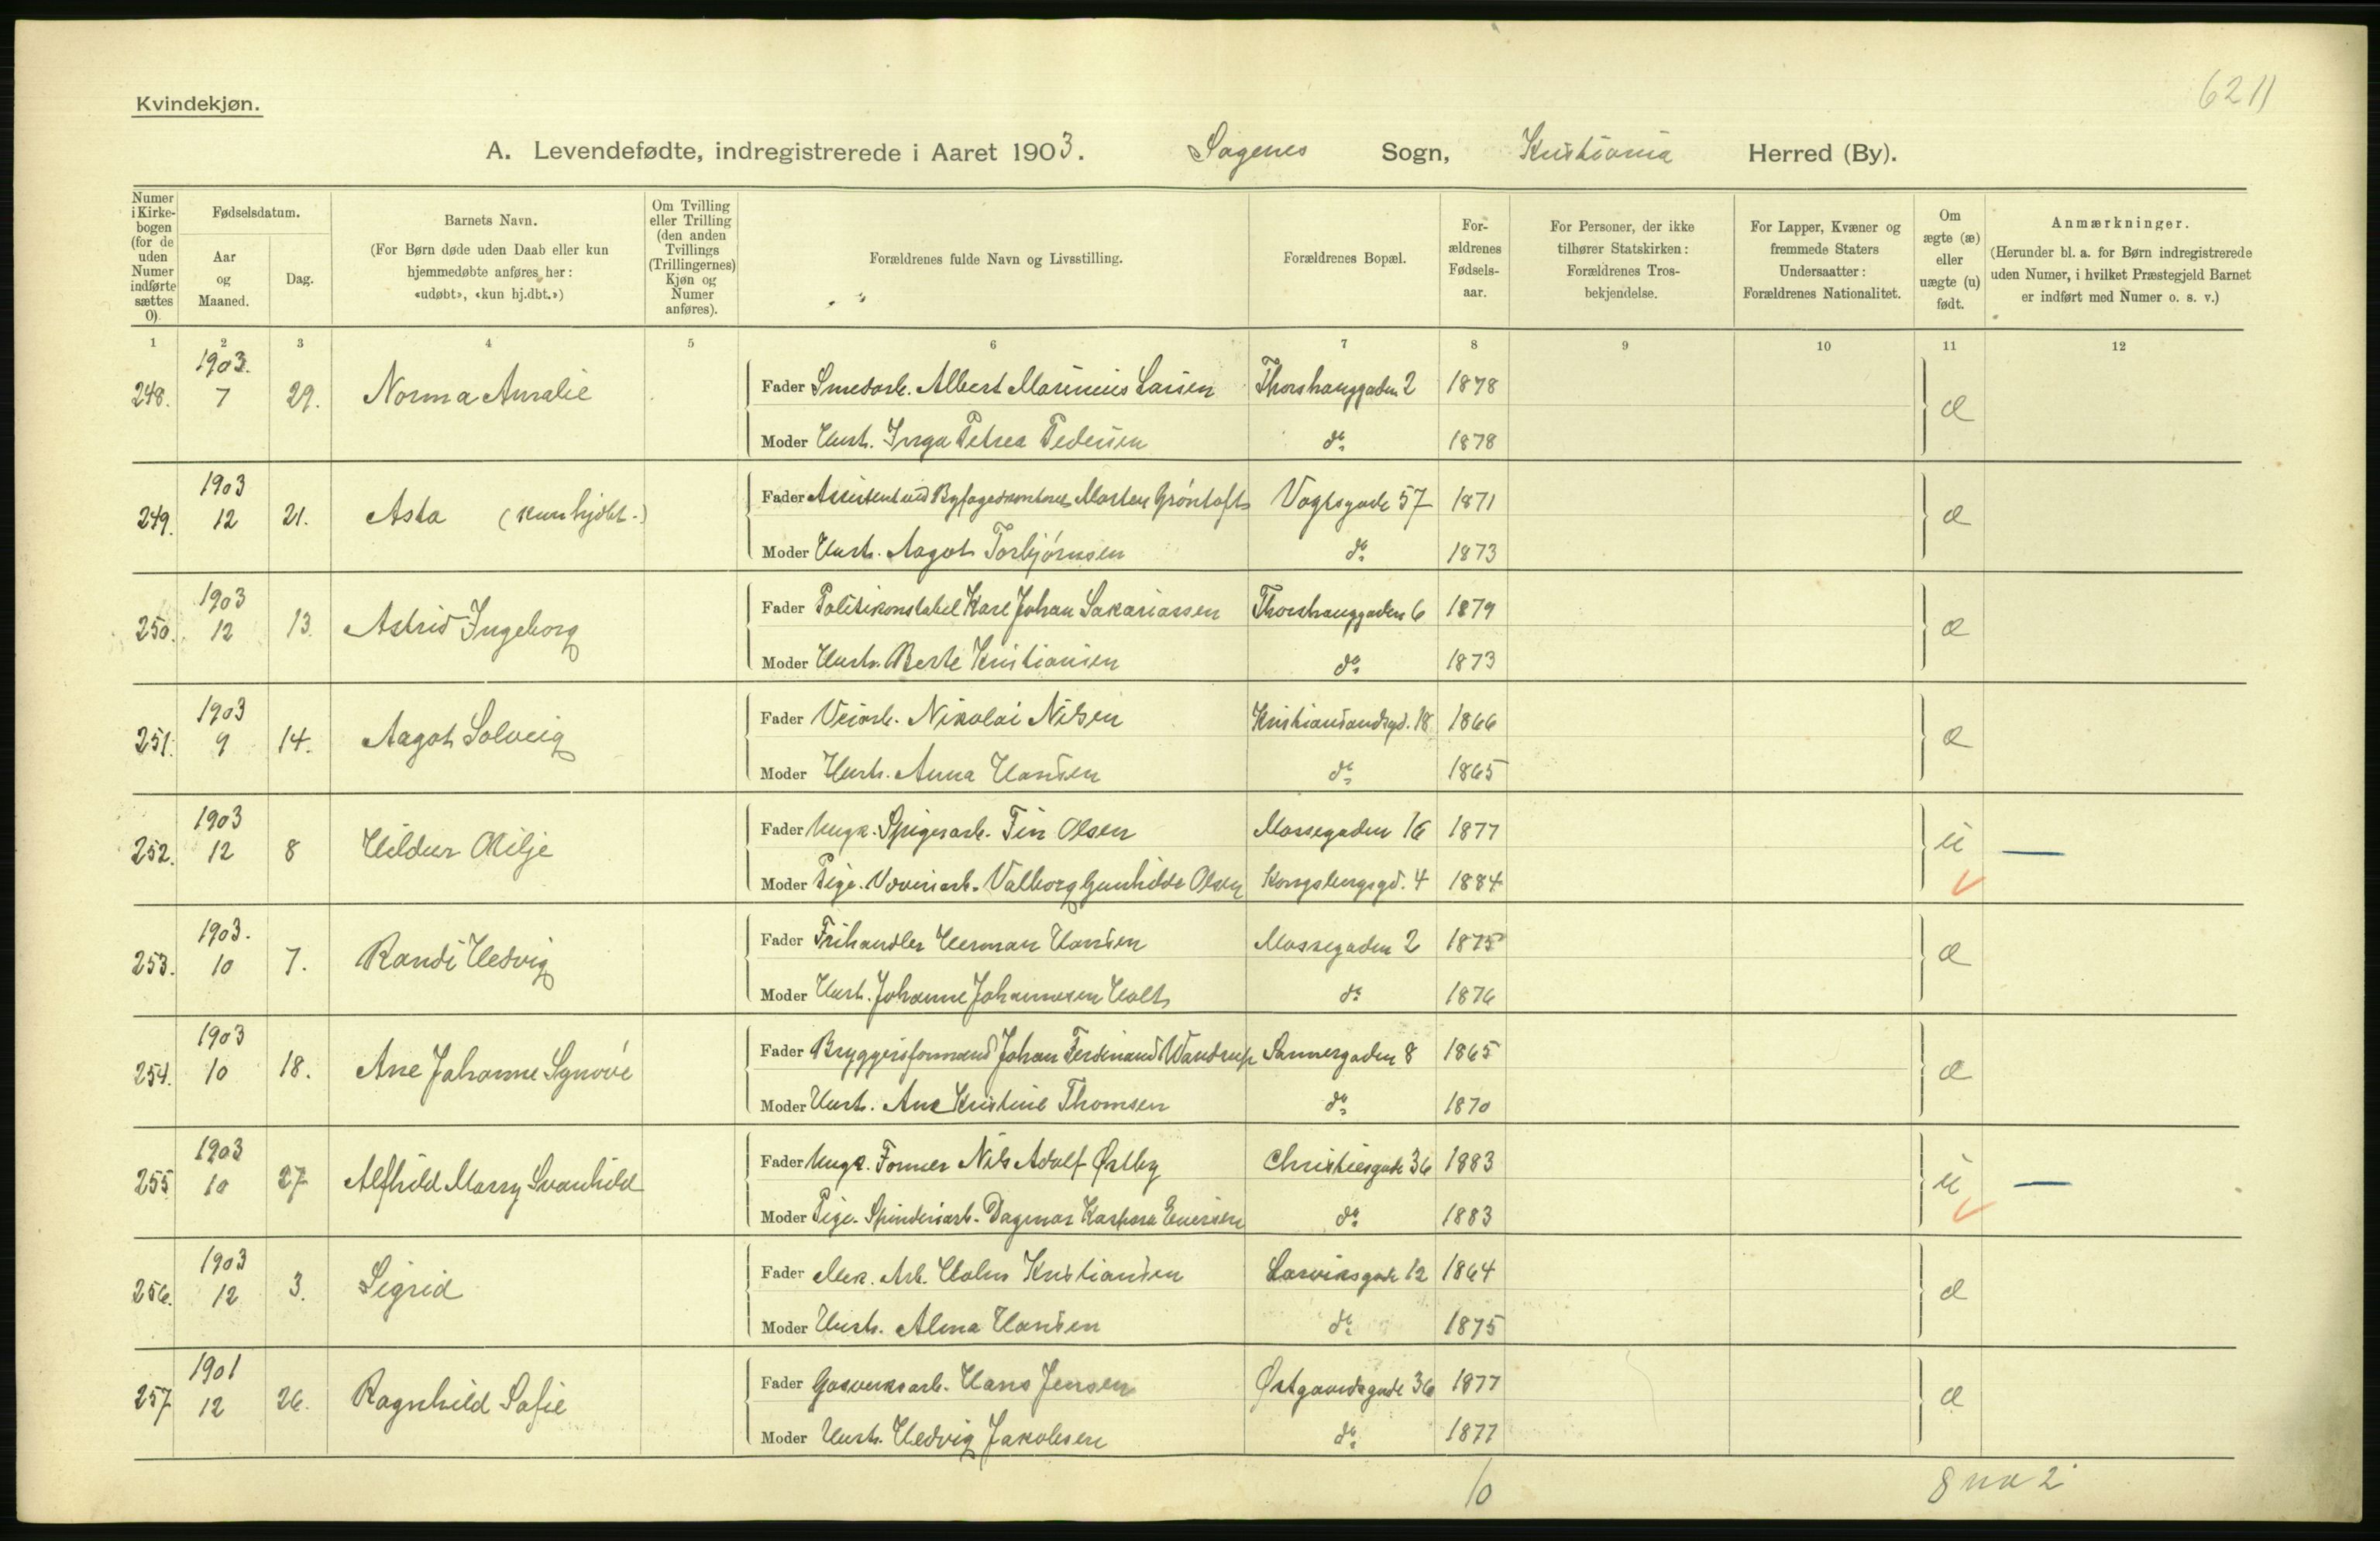 6211
Kvindekjøn.
A. Levendefødte, indregistrerede i Aaret 1903. Sagenes Sogn, Kristiania Herred (By).
Numer i Kirkebogen (for de uden Numer indførte sættes 0).
Fødselsdatum.
Aar og Maaned.
Dag.
Barnets Navn.
(For Børn døde uden Daab eller kun hjemmedøbte anføres her: «udøbt», «kun hj.dbt.»)
Om Tvilling eller Trilling (den anden Tvillings (Trillingernes) Kjøn og Numer anføres).
Forældrenes fulde Navn og Livsstilling.
Forældrenes Bopæl.
Forældrenes Fødselsaar.
For Personer, der ikke tilhører Statskirken: Forældrenes Trosbekjendelse.
For Lapper, Kvæner og fremmede Staters Undersaatter: Forældrenes Nationalitet.
Om ægte (æ) eller uægte (u) født.
Anmærkninger.
(Herunder bl. a. for Børn indregistrerede uden Numer, i hvilket Præstegjeld Barnet er indført med Numer o. s. v.)
1 2 3 4 5 6 7 8 9 10 11 12
248. 1903. 7 29. Norma Amalie Fader Smedarb. Albert Marinius Larsen Thorshauggaden 2 1878 æ
Moder Hust. Inga Petrea Pedersen do 1878
249. 1903 12 21. Asta (kun hjdbt.) Fader Assistent ved Byfogedkontoret Morten Grøntoft Vogtsgade 57 1871 æ
Moder Hust. Aagot Torbjørnsen do 1873
250. 1903 12 13. Astrid Ingeborg Fader Politikonstabel Karl Johan Sakariassen Thorshauggaden 6 1879 æ
Moder Hust. Berte Kristiansen do 1873
251. 1903 9 14. Aagot Solveig Fader Veiarb. Nikolai Nilsen Kristiansandsgd. 18 1866 æ
Moder Hust. Anna Hansen do 1865
252. 1903 12 8 Hildur Milje Fader Ungk. Spigerarb. Fin Olsen Mossegaden 16 1877 u —
Moder Pige. Væveriarb. Valborg Gunhilde Olsen Kongsbergsgd. 4 1884
253. 1903. 10 7. Randi Hedvig Fader Frihandler Herman Hansen Mossegaden 2 1875 æ
Moder Hust. Johanne Johannesen Holt do 1876
254. 1903 10 18. Ane Johanne Synøve Fader Bryggeriformand Johan Ferdinand Wandrup Sannergaden 8 1865 æ
Moder Hust. Ane Kristine Thomsen do 1870
255 1903 10 27 Alfhild Marry Svanhild Fader Ungk. Former Nils Adolf Østby Christiesgade 36 1883 u —
Moder Pige. Spinderiarb. Dagmar Kaspara Evensen do 1883
256. 1903 12 3. Sigrid Fader Mek. Arb. Holm Kristiansen Larviksgade 12 1864 æ
Moder Hust. Alma Hansen do 1875
257 1901 12 26. Ragnhild Sofie Fader Gasverksarb. Hans Jensen Østgaardsgade 36 1877 æ
Moder Hust. Hedvig Jakobsen do 1877
10